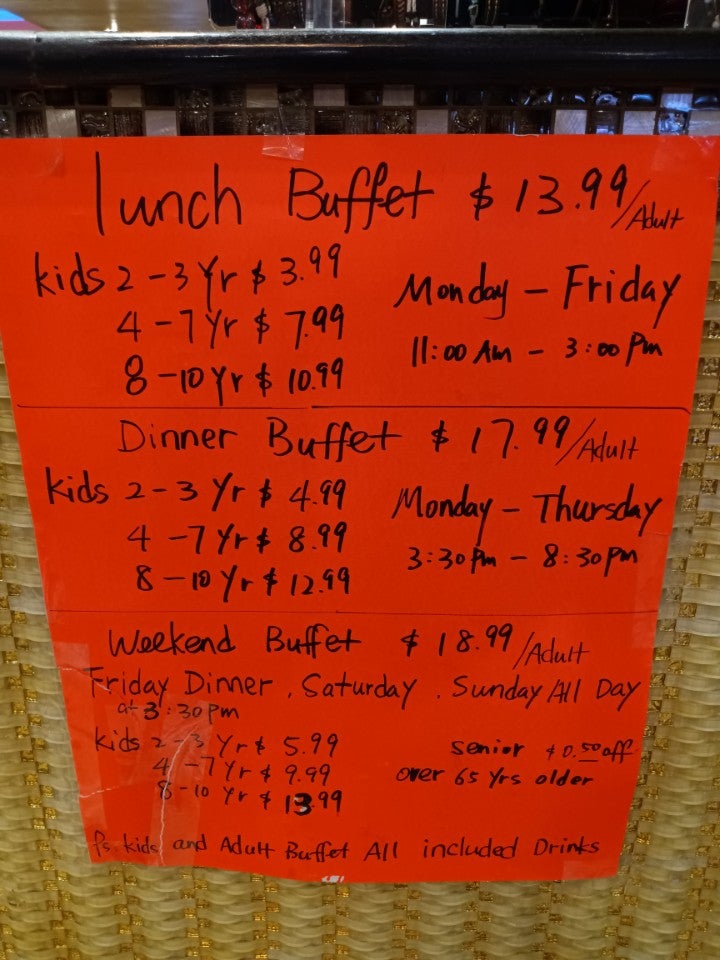 lunch Buffet $13.99/Adult
kids 2-3 Yr $ 3.99
4-7 Yr $ 7.99
8-10 Yr $ 10.99
Monday - Friday
11:00 Am - 3:00 Pm
Dinner Buffet $ 17.99/Adult
kids 2-3 Yr $ 4.99
4-7 Yr $ 8.99
8-10 Yr $ 12.99
Monday - Thursday
3:30 Pm - 8:30 Pm
Weekend Buffet $ 18.99/Adult
Friday Dinner, Saturday, Sunday All Day
at 3:30 pm
kids 2-3 Yr $ 5.99
4-7 Yr $ 9.99
8-10 Yr $ 13.99
senior $0.50 off
over 65 Yrs older
Ps. kids and Adult Buffet All included Drinks